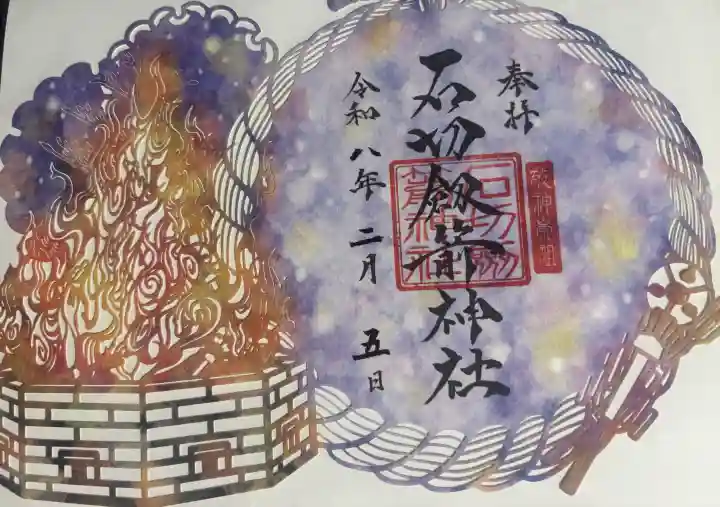 奉拝
石切劔箭神社
石切劔箭神社
令和八年二月五日